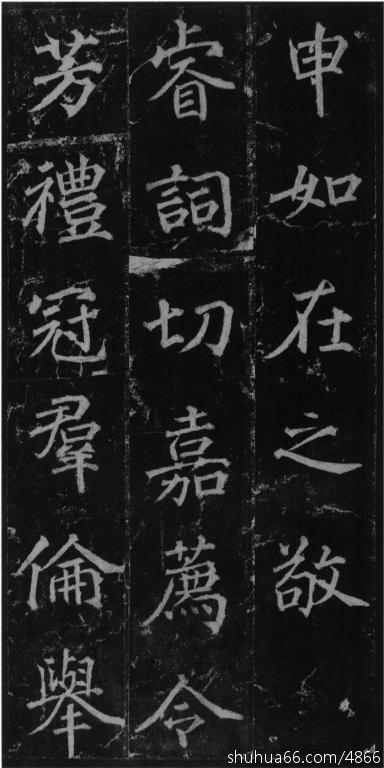 申如在之敬
睿詞切嘉薦令
芳禮冠羣倫舉
shuhua66.com/4866